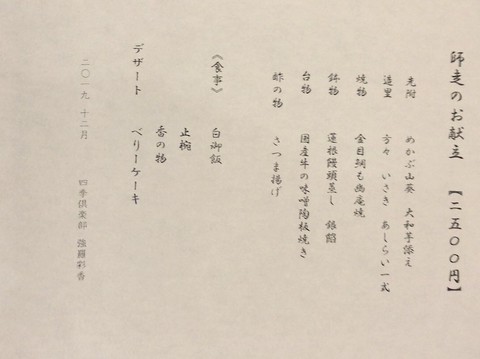 師走のお献立 【二五〇〇円】
先附 めかぶ山葵 大和芋添え
造里 方々 いさき あしらい一式
焼物 金目鯛も幽庵焼
鉢物 蓮根饅頭蒸し 銀餡
台物 国産牛の味噌陶板焼き
酢の物 さつま揚げ
《食事》 白御飯
止椀
香の物
デザート べりーケーキ
二〇一九 十二月 四季倶楽部 強羅彩香